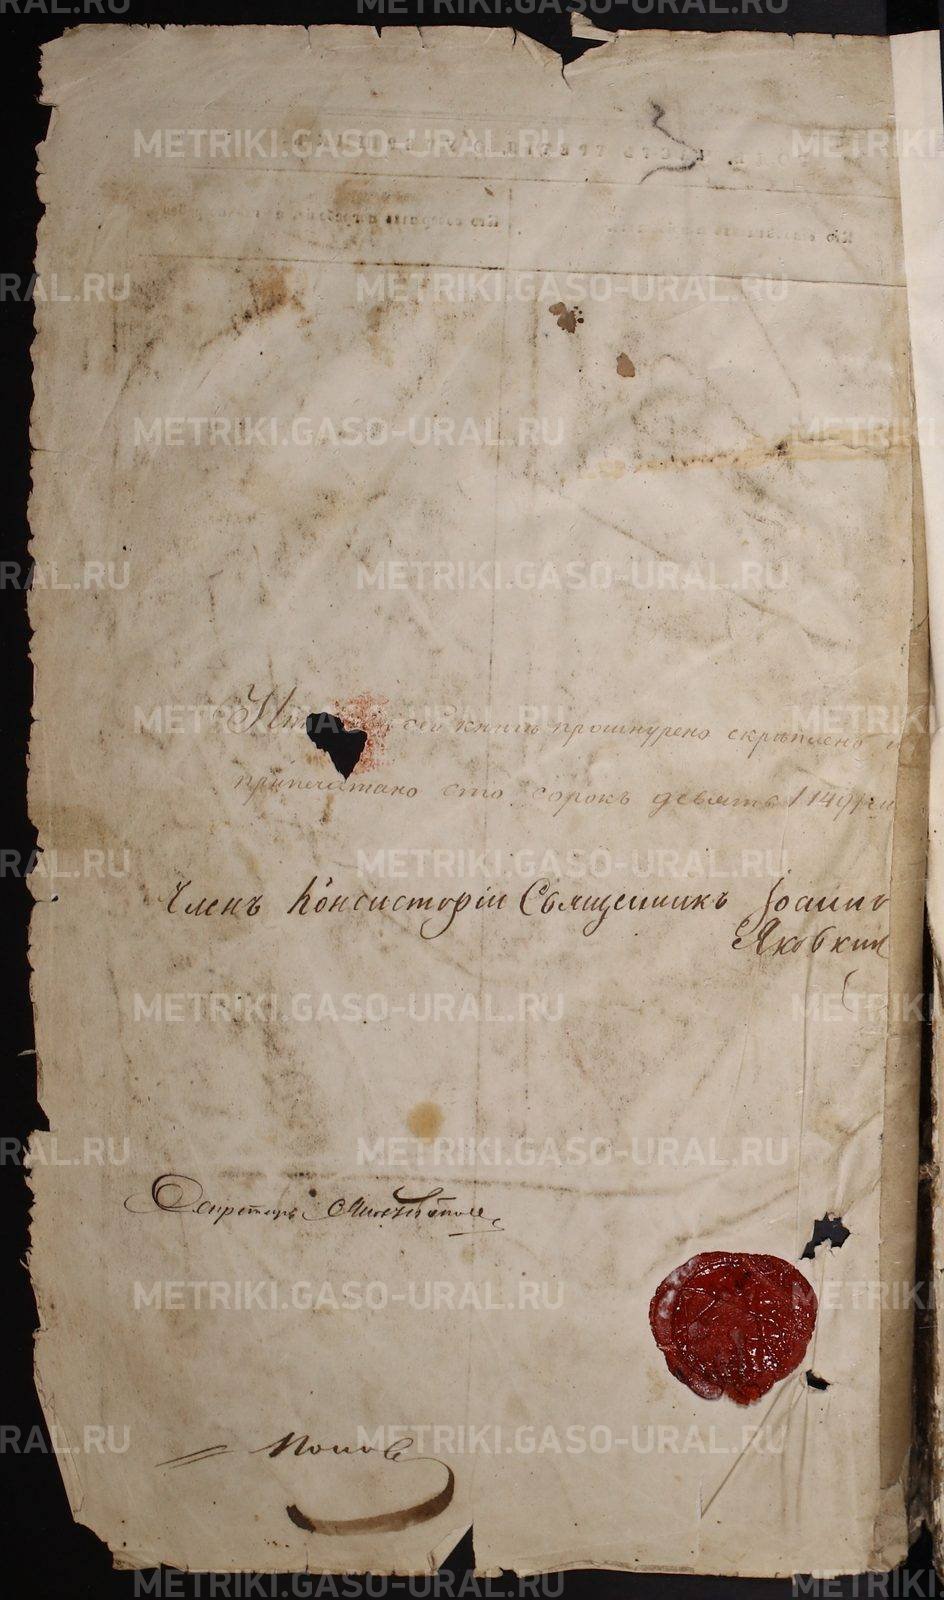 Ит сей книгѣ прошнурено скрѣплено и
припечатано сто сорокъ девять /149/ ли
Членъ Консисторіи Священникъ Іоаннъ
Яковкин
Секретарь
Попов
METRIKI.GASO-URAL.RU